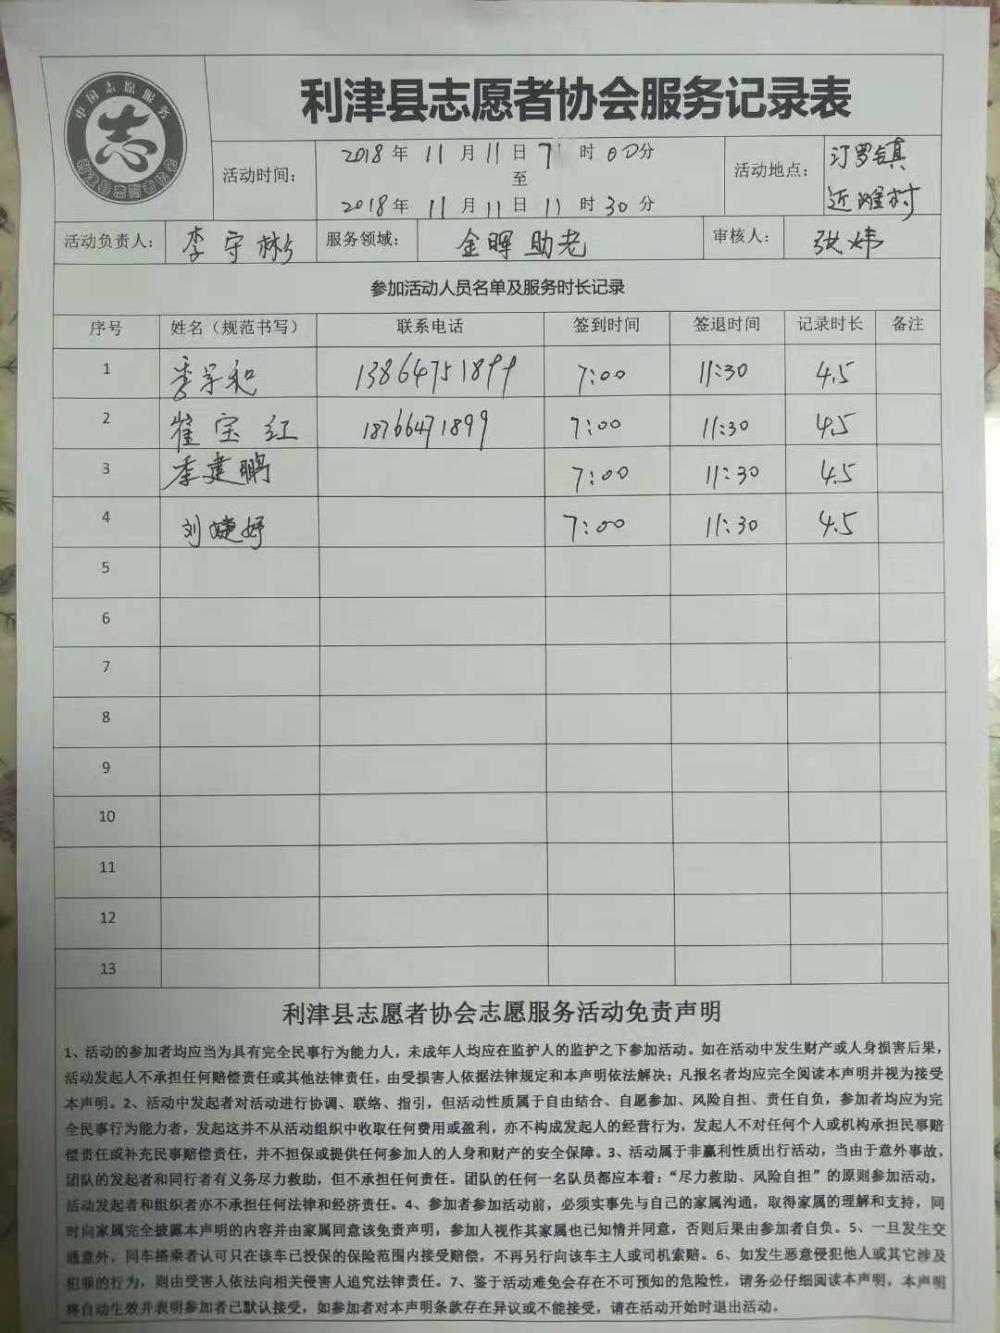 中国志愿服务
志
利津县志愿者协会服务记录表
活动时间：
2018年11月11日7时00分
至
2018年11月11日11时30分
活动地点：
汀罗镇
近滩村
活动负责人：
李守彬
服务领域：
金晖助老
审核人：
张炜
参加活动人员名单及服务时长记录
序号 姓名（规范书写） 联系电话 签到时间 签退时间 记录时长 备注
1 13864751899 7:00 11:30 4.5
2 崔宝红 18766471899 7:00 11:30 4.5
3 李建鹏 7:00 11:30 4.5
4 刘婕妤 7:00 11:30 4.5
5
6
7
8
9
10
11
12
13
利津县志愿者协会志愿服务活动免责声明
1、活动的参加者均应当为具有完全民事行为能力人，未成年人均应在监护人的监护之下参加活动。如在活动中发生财产或人身损害后果，
活动发起人不承担任何赔偿责任或其他法律责任，由受损害人依据法律规定和本声明依法解决；凡报名者均应完全阅读本声明并视为接受
本声明。2、活动中发起者对活动进行协调、联络、指引，但活动性质属于自由结合、自愿参加、风险自担、责任自负，参加者均应为完
全民事行为能力者，发起这并不从活动组织中收取任何费用或盈利，亦不构成发起人的经营行为，发起人不对任何个人或机构承担民事赔
偿责任或补充民事赔偿责任，并不担保或提供任何参加人的人身和财产的安全保障。3、活动属于非赢利性质出行活动，当由于意外事故，
团队的发起者和同行者有义务尽力救助，但不承担任何责任。团队的任何一名队员都应本着：“尽力救助、风险自担”的原则参加活动，
活动发起者和组织者亦不承担任何法律和经济责任。4、参加者参加活动前，必须实事先与自己的家属沟通，取得家属的理解和支持，同
时向家属完全披露本声明的内容并由家属同意该免责声明，参加人视作其家属也已知情并同意，否则后果由参加者自负。5、一旦发生交
通意外，同车搭乘者认可只在该车已投保的保险范围内接受赔偿，不再另行向该车主人或司机索赔。6、如发生恶意侵犯他人或其它涉及
犯罪的行为，则由受害人依法向相关侵害人追究法律责任。7、鉴于活动难免会存在不可预知的危险性，请务必仔细阅读本声明，本声明
将自动生效并表明参加者已默认接受，如参加者对本声明条款存在异议或不能接受，请在活动开始时退出活动。